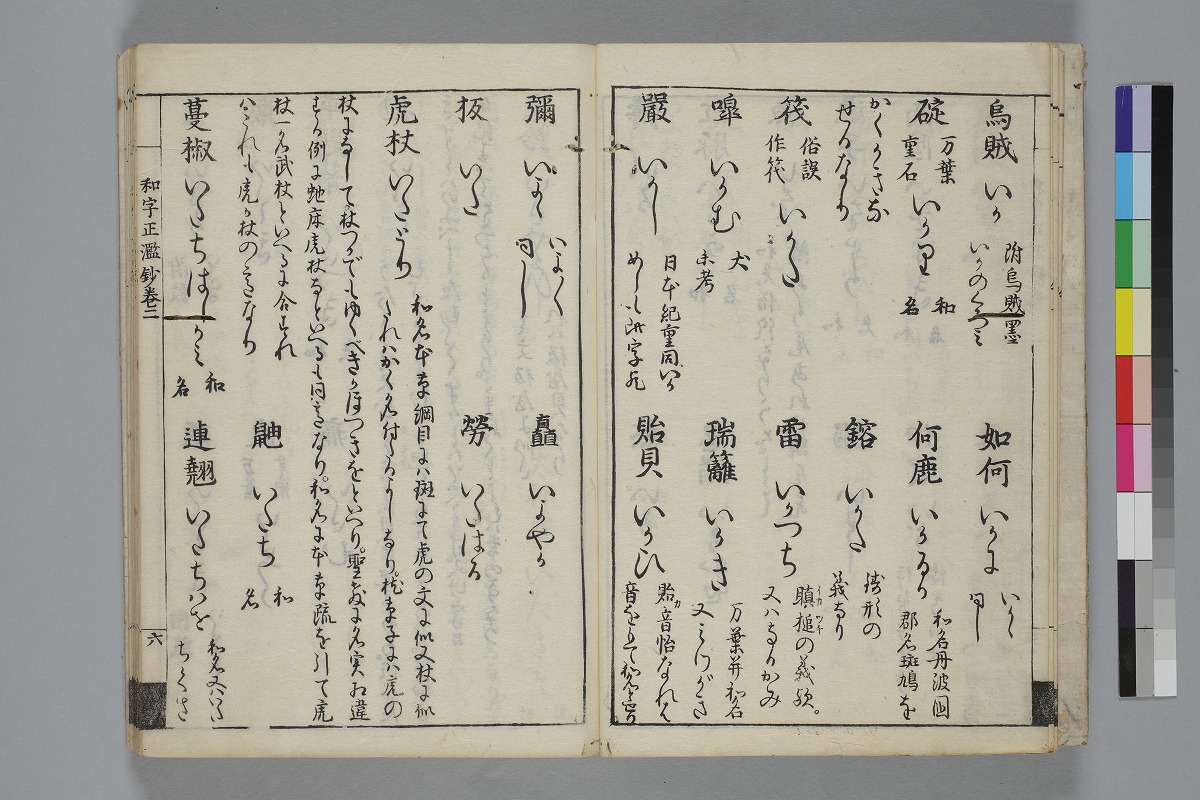 烏賊 いか 附烏賊墨
いかのくろミ
如何 いかに いかゝ
同し
碇 万葉
重石 いかり 和
名
何鹿 いかるか 和名丹波国
郡名斑鳩を
かくかさな
せるなり
鎔 いかた 鋳形の
義なり
筏 俗誤
作筏 いかた
雷 いかつち 瞋槌の義歟。
イカツチ
又ハなるかみ
嘷 いかむ 犬
未考
瑞籬 いかき 万葉并和名
又みつがき
嚴 いかし 日本紀重同いか
めしも此字歟
貽貝 いかひ 貽音怡なれハ
音をもて
彌 いよゝ いよ〳〵
同し
矗 いよやか
板 いた
勞 いたはる
虎杖 いたとり 和名本草綱目にハ斑にて虎の文に似又杖に似
たれハかく名付たるよしなり。枕草子にハ虎の
杖にもして杖つかでもゆくべきかほつきをといへり。聖教に名実相違
する例に虵床虎杖なといへるも同意なり。和名に本草疏を引て虎
杖一名武杖といへるに合すれ
ハこれも虎か杖の心なり
鼬 いたち 和
名
蔓椒 いたちはしかミ 和
名
連翹 いたちハせ 和名又ハいた
ちくさ
和字正濫鈔巻二
六